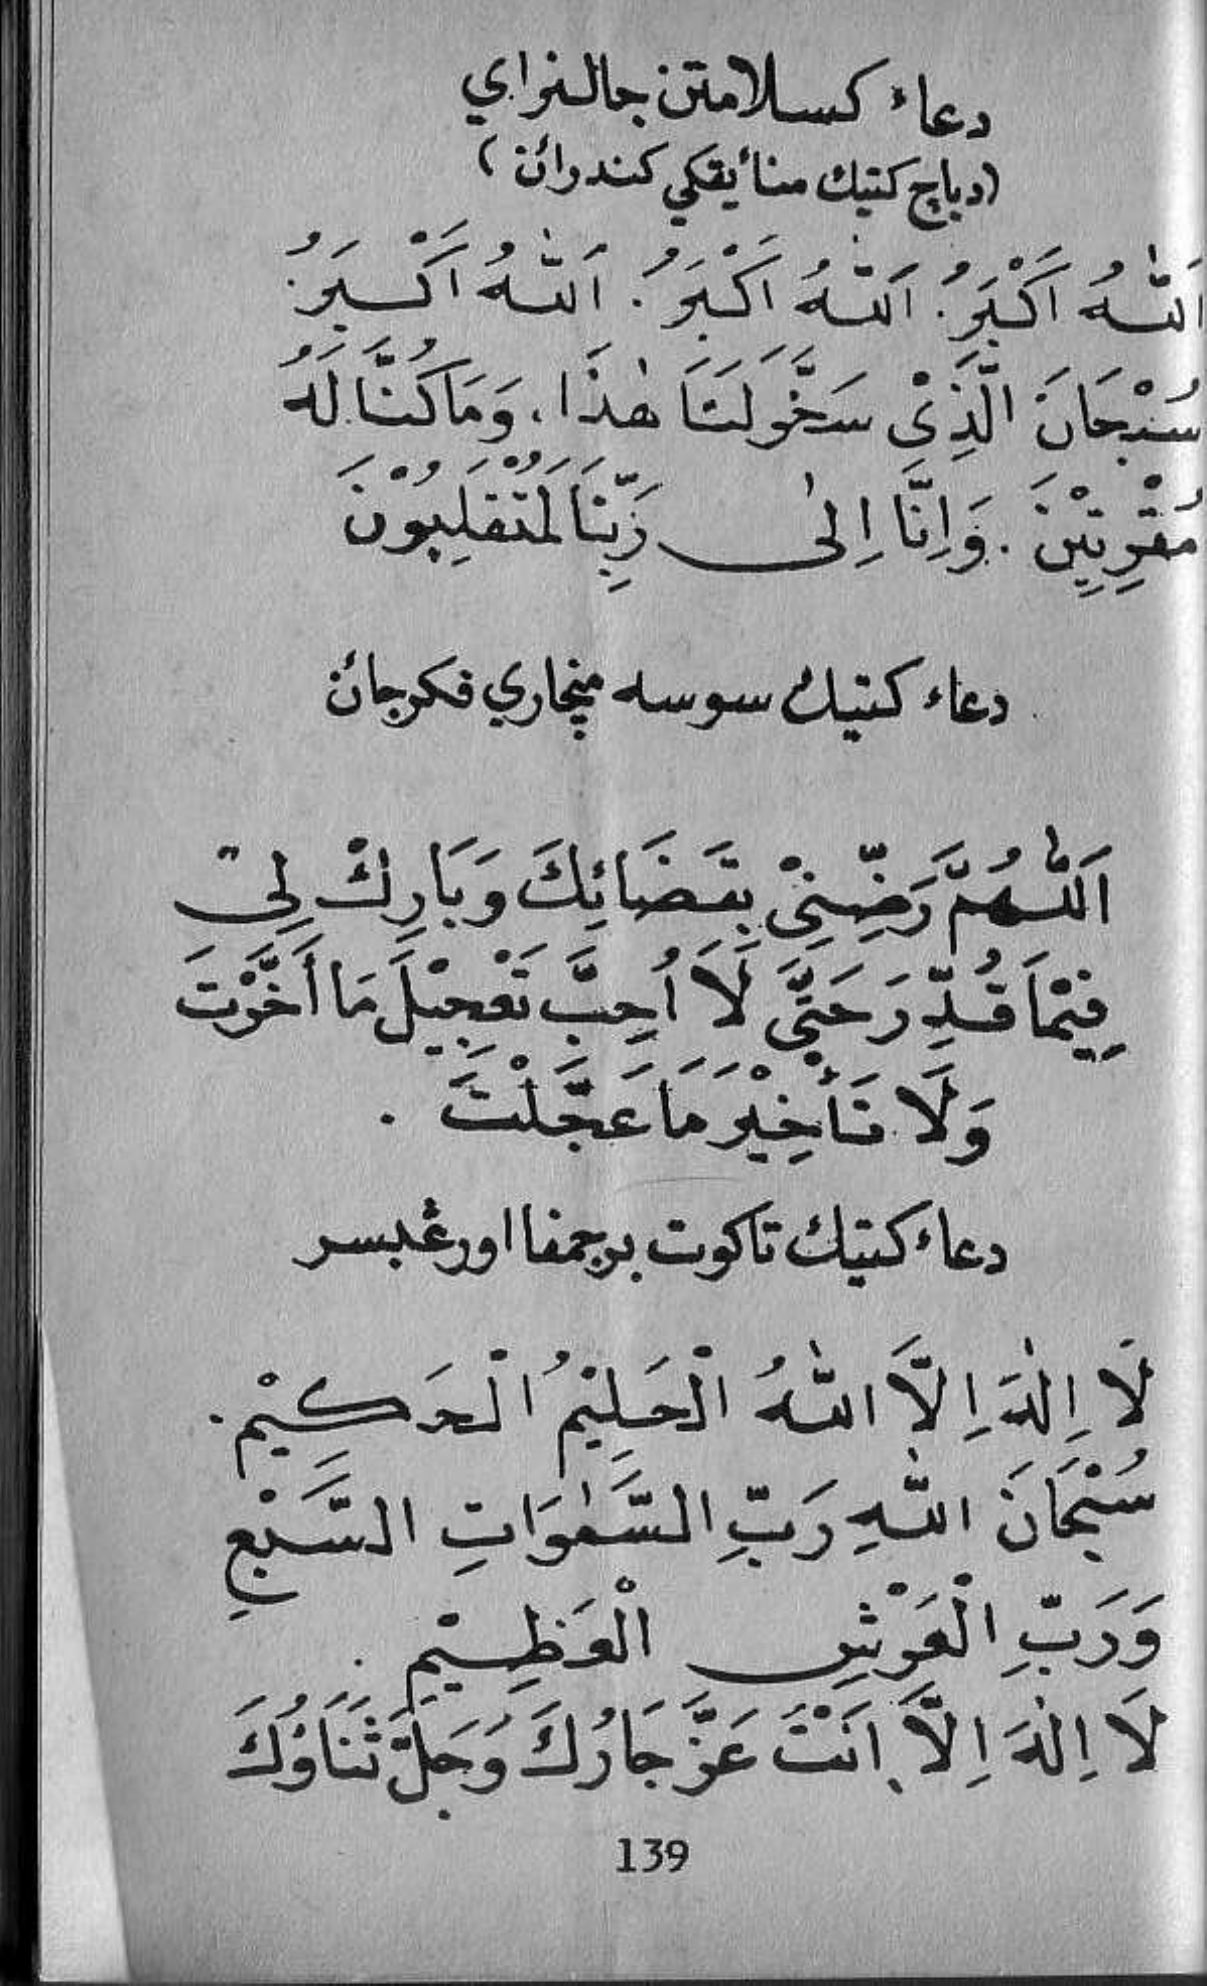 دعاء كسلامتن جالنراي
(دباچ كتيك منأيقكي كندرائن)
اَللّٰهُ اَكْبَرُ. اَللّٰهُ اَكْبَرُ. اَللّٰهُ اَكْبَرُ.
سُبْحَانَ الَّذِيْ سَخَّرَلَنَا هٰذَا، وَمَاكُنَّا لَهُ
مُقْرِنِيْنَ. وَاِنَّا اِلىٰ رَبِّنَا لَمُنْقَلِبُوْنَ
دعاء كتيك سوسه منچاري فكرجائن
اَللّٰهُمَّ رَضِّنِيْ بِقَضَائِكَ وَبَارِكْ لِيْ
فِيْمَا قُدِّرَ حَتَّى لَا اُحِبَّ تَعْجِيْلَ مَا أَخَّرْتَ
وَلَا تَأْخِيْرَ مَا عَجَّلْتَ.
دعاء كتيك تاكوت برجمفا اورڠبسر
لَا اِلٰهَ اِلَّا اللّٰهُ الْحَلِيْمُ الْحَكِيْمِ.
سُبْحَانَ اللّٰهِ رَبِّ السَّمٰوَاتِ السَّبْعِ
وَرَبِّ الْعَرْشِ الْعَظِيْمِ.
لَا اِلٰهَ اِلَّا اَنْتَ عَزَّ جَارُكَ وَجَلَّ ثَنَاؤُكَ
139